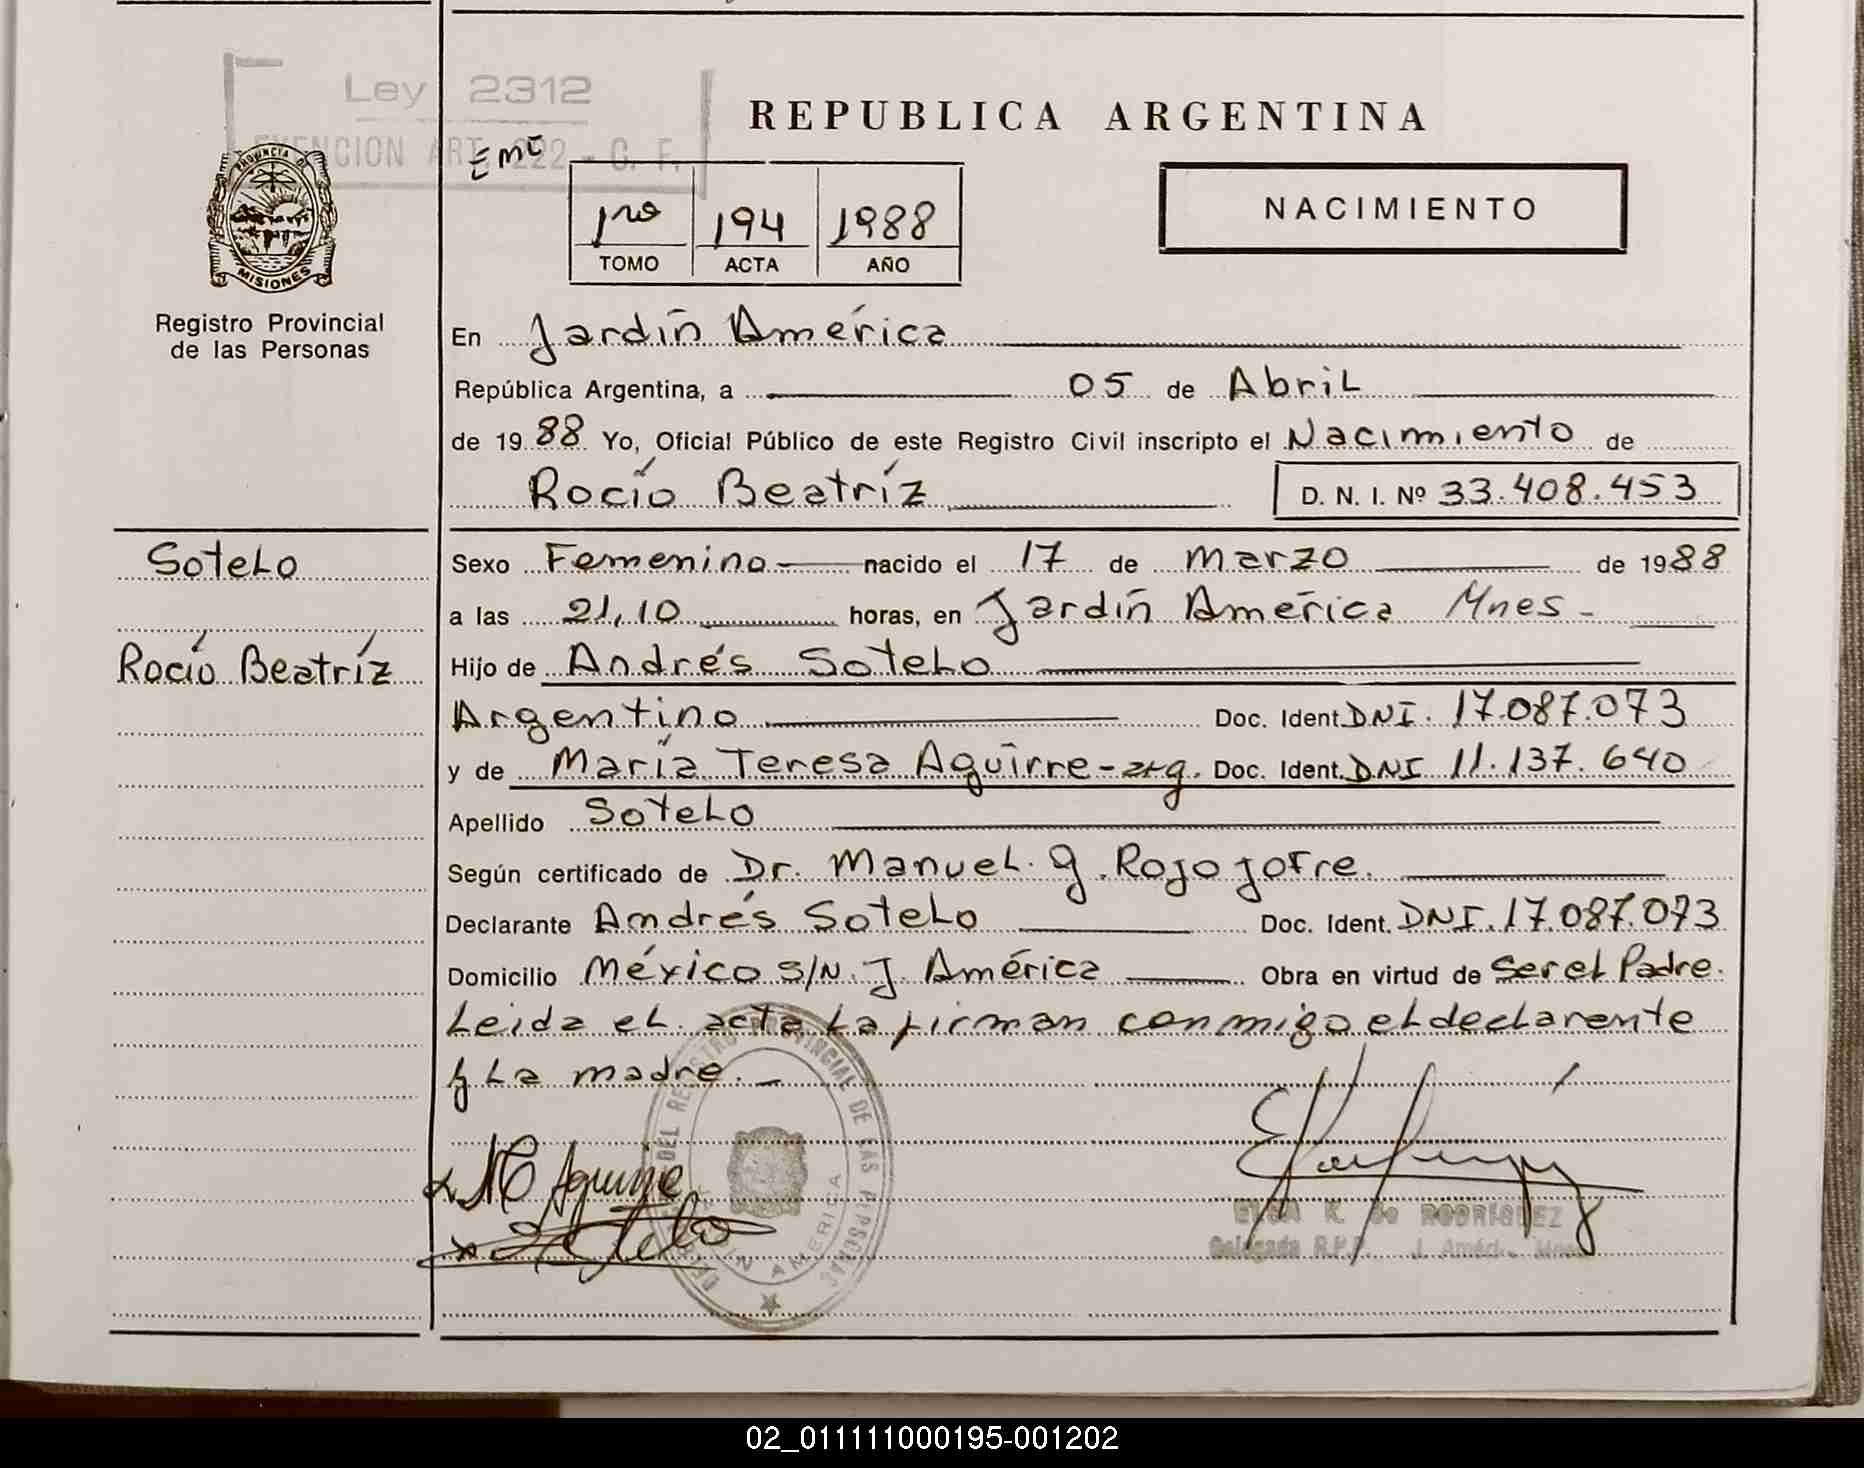 Ley 2312
EXENCION ART. 222 - C. F.
REPUBLICA ARGENTINA
PROVINCIA DE
MISIONES
Registro Provincial
de las Personas
1ro 194 1988
TOMO ACTA AÑO
NACIMIENTO
En Jardín América
República Argentina, a 05 de Abril
de 1988 Yo, Oficial Público de este Registro Civil inscripto el Nacimiento de
Rocío Beatríz D. N. I. Nº 33.408.453
Sotelo
Rocío Beatríz
Sexo Femenino nacido el 17 de Marzo de 1988
a las 21,10 horas, en Jardín América Mnes-
Hijo de Andrés Sotelo
Argentino Doc. Ident. DNI. 17.087.073
y de María Teresa Aguirre-arg. Doc. Ident. DNI 11.137.640
Apellido Sotelo
Según certificado de Dr. Manuel. G. Rojo Jofre.
Declarante Andrés Sotelo Doc. Ident. DNI. 17.087.073
Domicilio México S/N. J. América Obra en virtud de Ser el Padre.
Leida el acta la firman conmigo el declarente
y la madre.-
DEL REGISTRO PROVINCIAL DE LAS PERSONAS
JARDIN AMERICA
M Aguirre
Sotelo
ELSA K. de RODRIGUEZ
Delegada R.P.P. J. América Mnes
02_011111000195-001202